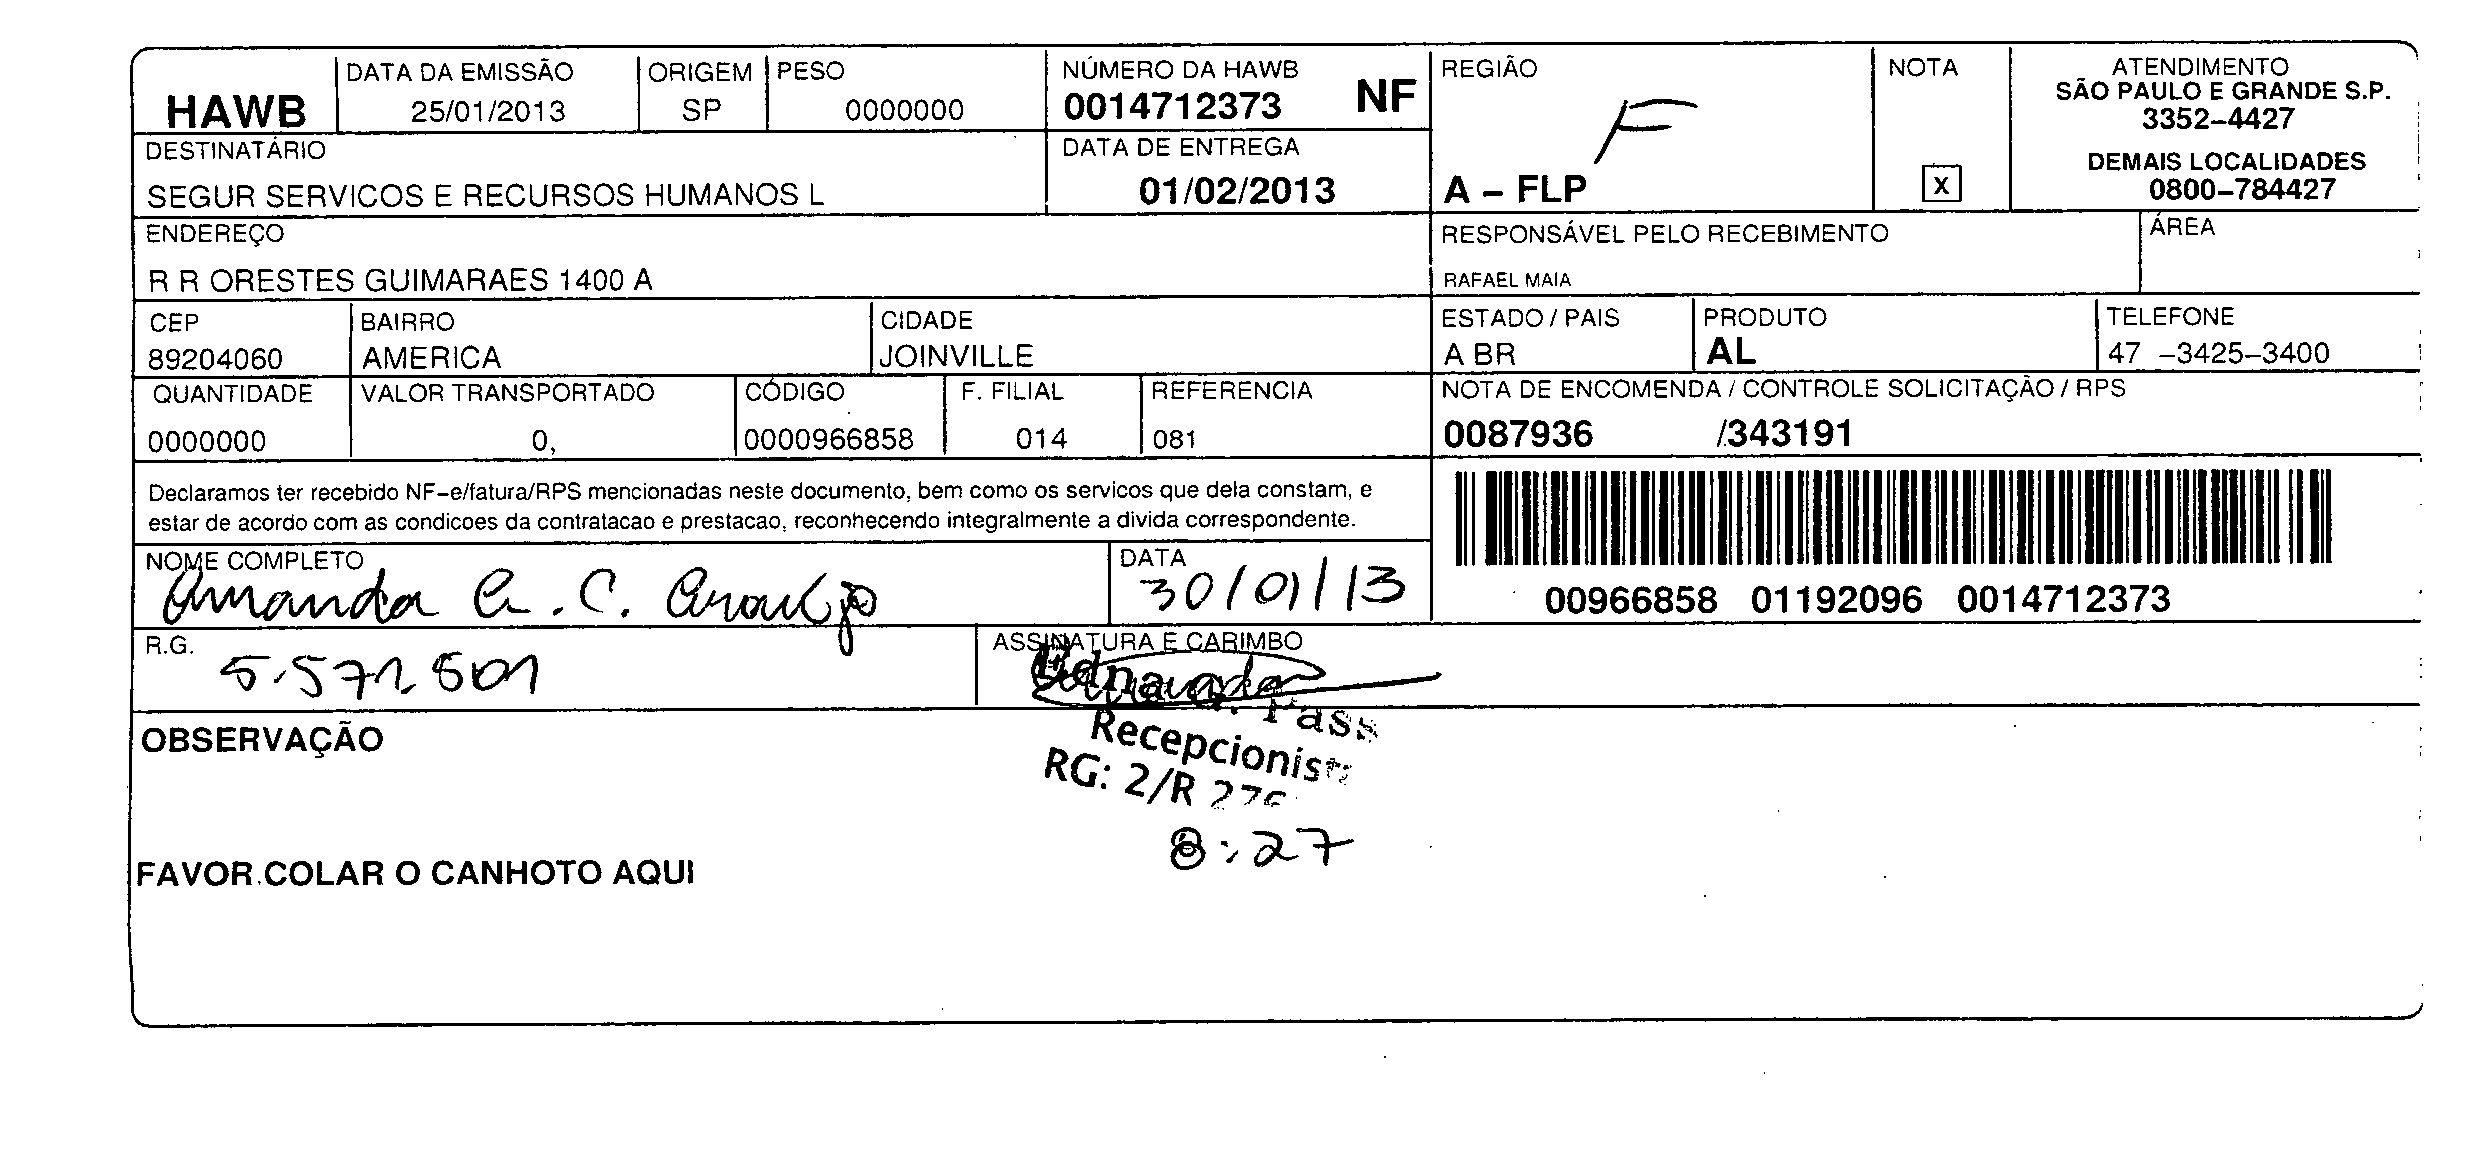 HAWB
DATA DA EMISSÃO
25/01/2013
ORIGEM
SP
PESO
0000000
NÚMERO DA HAWB
0014712373 NF
REGIÃO
F
A – FLP
NOTA
X
ATENDIMENTO
SÃO PAULO E GRANDE S.P.
3352–4427
DEMAIS LOCALIDADES
0800–784427
DESTINATÁRIO
SEGUR SERVICOS E RECURSOS HUMANOS L
DATA DE ENTREGA
01/02/2013
ENDEREÇO
R R ORESTES GUIMARAES 1400 A
RESPONSÁVEL PELO RECEBIMENTO
RAFAEL MAIA
ÁREA
CEP
89204060
BAIRRO
AMERICA
CIDADE
JOINVILLE
ESTADO / PAIS
A BR
PRODUTO
AL
TELEFONE
47 –3425–3400
QUANTIDADE
0000000
VALOR TRANSPORTADO
0,
CÓDIGO
0000966858
F. FILIAL
014
REFERENCIA
081
NOTA DE ENCOMENDA / CONTROLE SOLICITAÇÃO / RPS
0087936 /343191
Declaramos ter recebido NF–e/fatura/RPS mencionadas neste documento, bem como os servicos que dela constam, e
estar de acordo com as condicoes da contratacao e prestacao, reconhecendo integralmente a divida correspondente.
00966858 01192096 0014712373
NOME COMPLETO
Amanda A. C. Araujo
DATA
30/01/13
R.G.
5.571.501
ASSINATURA E CARIMBO
Recepcionist
RG: 2/R 276
8:27
OBSERVAÇÃO
FAVOR COLAR O CANHOTO AQUI